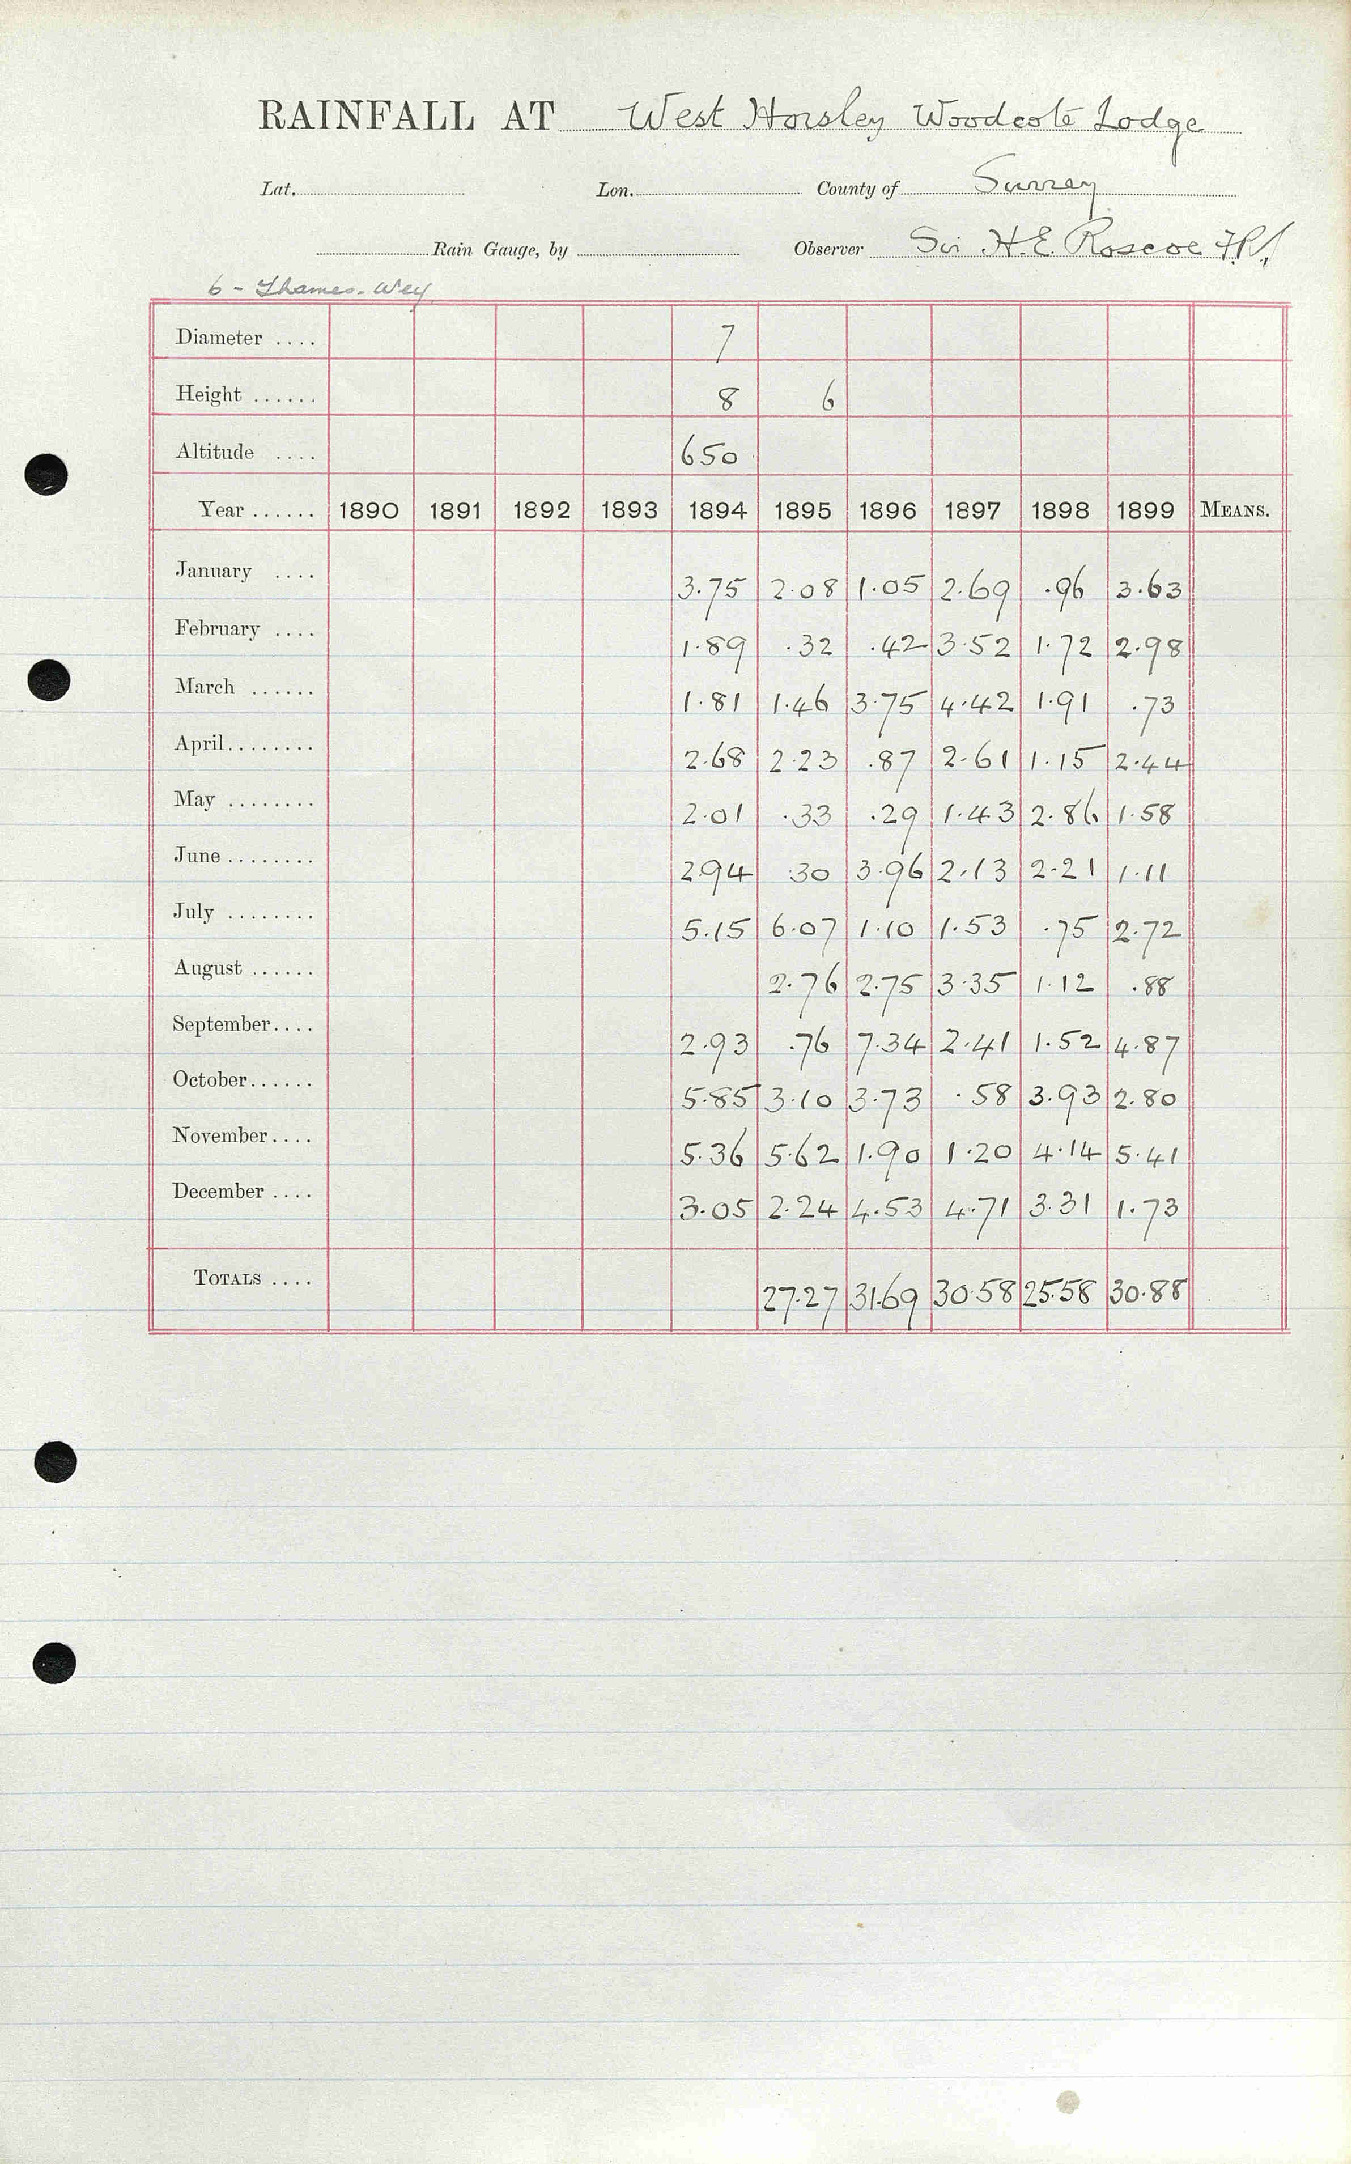 RAINFALL AT West Horsley Woodcote Lodge
Lat. Lon. County of Surrey
Rain Gauge, by Observer Sir H.E. Roscoe F.R.S.
6 - Thames. Wey
Diameter .... 7
Height ...... 8 6
Altitude .... 650
Year ...... 1890 1891 1892 1893 1894 1895 1896 1897 1898 1899 MEANS.
January .... 3.75 2.08 1.05 2.69 .96 3.63
February .... 1.89 .32 .42 3.52 1.72 2.98
March ...... 1.81 1.46 3.75 4.42 1.91 .73
April........ 2.68 2.23 .87 2.61 1.15 2.44
May ........ 2.01 .33 .29 1.43 2.86 1.58
June ........ 2.94 .30 3.96 2.13 2.21 1.11
July ........ 5.15 6.07 1.10 1.53 .75 2.72
August ...... 2.76 2.75 3.35 1.12 .88
September.... 2.93 .76 7.34 2.41 1.52 4.87
October...... 5.85 3.10 3.73 .58 3.93 2.80
November.... 5.36 5.62 1.90 1.20 4.14 5.41
December .... 3.05 2.24 4.53 4.71 3.31 1.73
TOTALS .... 27.27 31.69 30.58 25.58 30.88